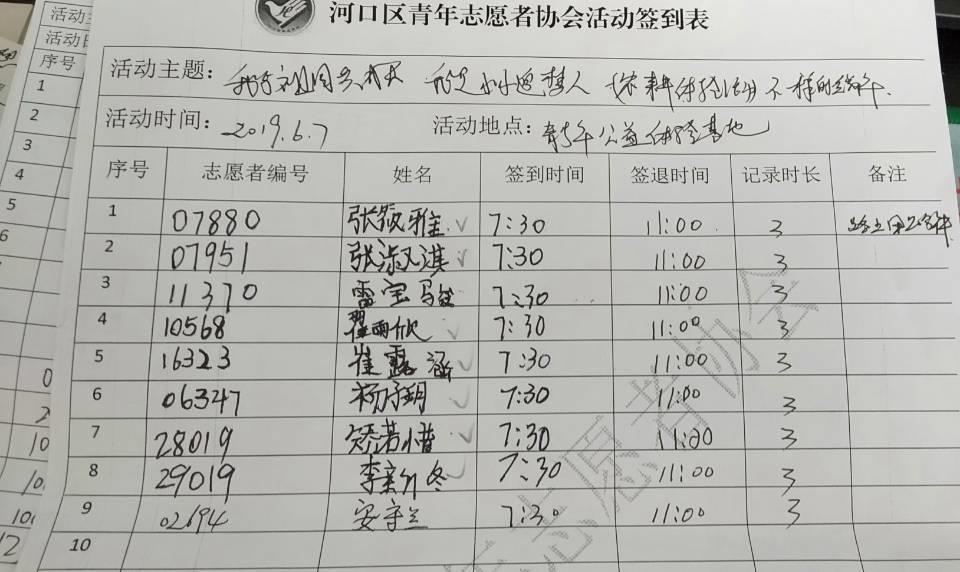 河口区青年志愿者协会活动签到表
活动主题:
活动时间: 2019.6.7 活动地点: 青年公益体验基地
序号 志愿者编号 姓名 签到时间 签退时间 记录时长 备注
1 07880 张筱雅 7:30 11:00 3
2 07951 张淑淇 7:30 11:00 3
3 11370 雷宝骏 7:30 11:00 3
4 10568 翟雨欣 7:30 11:00 3
5 16323 崔露涵 7:30 11:00 3
6 06347 杨子玥 7:30 11:00 3
7 28019 7:30 11:00 3
8 29019 7:30 11:00 3
9 02694 安守兰 7:30 11:00 3
10